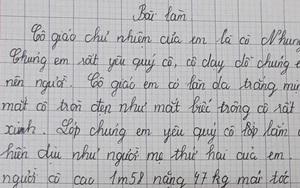 Bài làm
Cô giáo chư nhiên của em là cô Nhung
Chúng em rất yêu quý cô, cô dạy dỗ chúng e
nên người. Cô giáo em có làn da trắng mịn
mắt cô tròn đẹn như mắt biếc trông cô rất
xinh. Lớp chúng em yêu quý cô lắm
hiền dịu như người mẹ thứ hai của em.
người cô cao 1m58 nặng 47 kg mái tóc